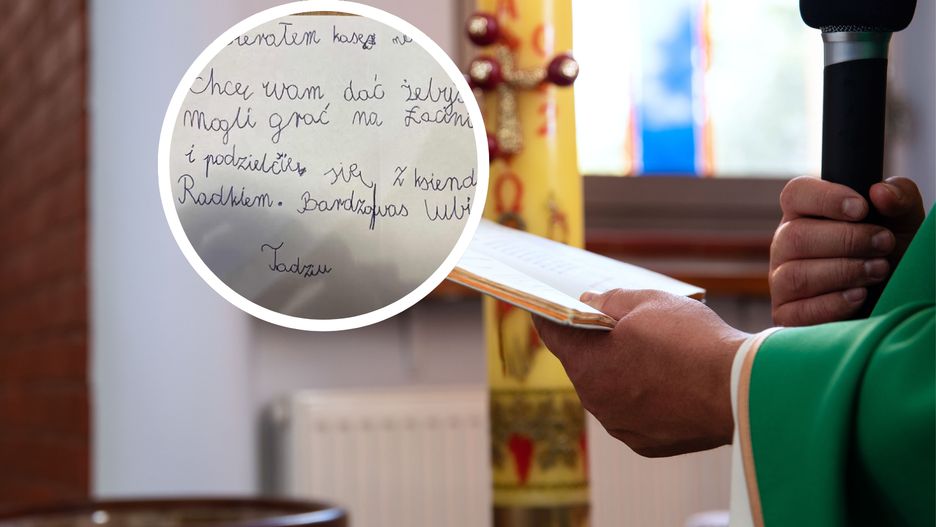 ierałem kasę
Chcę wam dać żeby
mogli grać na
i podzielcie się z ksiend
Radkiem. Bardzo was lubi
Tadziu